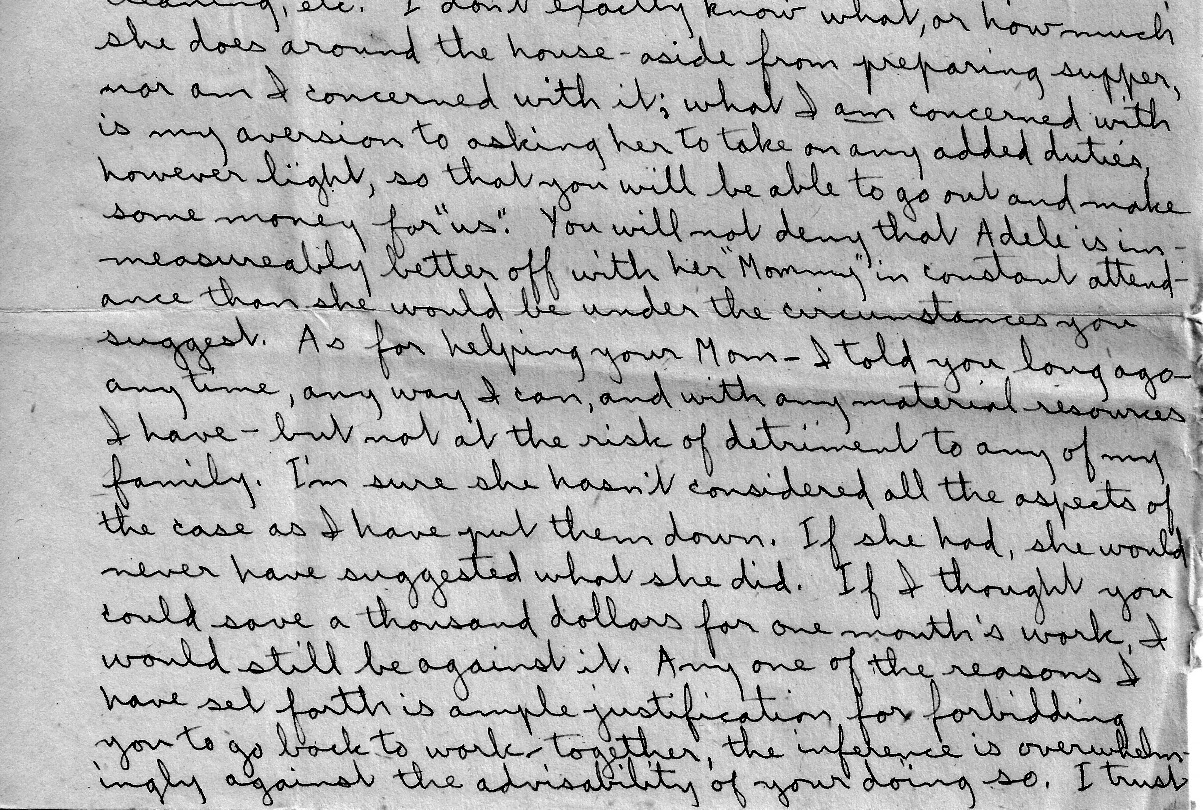 cleaning, etc. I don't exactly know what, or how much
she does around the house - aside from preparing supper,
nor am I concerned with it; what I am concerned with
is my aversion to asking her to take on any added duties,
however light, so that you will be able to go out and make
some money for "us". You will not deny that Adele is im-
measureably better off with her "Mommy" in constant attend-
ance than she would be under the circumstances you
suggest. As for helping your Mom - I told you long ago -
any time, any way I can, and with any material resources
I have - but not at the risk of detriment to any of my
family. I'm sure she hasn't considered all the aspects of
the case as I have put them down. If she had, she would
never have suggested what she did. If I thought you
could save a thousand dollars for one month's work, I
would still be against it. Any one of the reasons I
have set forth is ample justification for forbidding
you to go back to work - together, the inference is overwhelm-
ingly against the advisability of your doing so. I trust